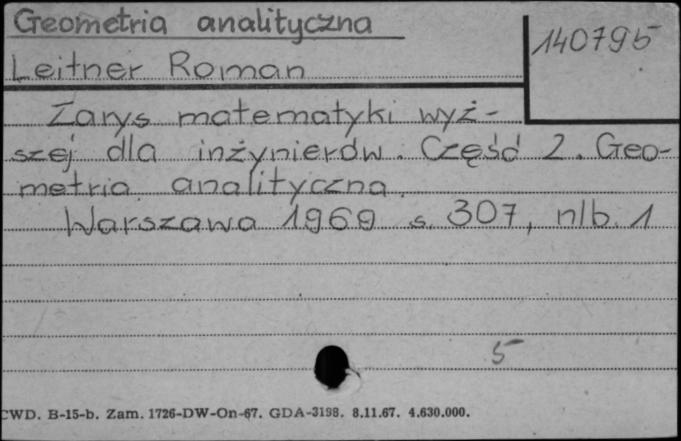 Geometria analityczna
140795
Leitner Roman
Zarys matematyki wyż-
szej dla inżynierów. Część 2. Geo-
metria analityczna.
Warszawa 1969 s. 307, nlb. 1
5
CWD. B-15-b. Zam. 1726-DW-On-67. GDA-3198. 8.11.67. 4.630.000.